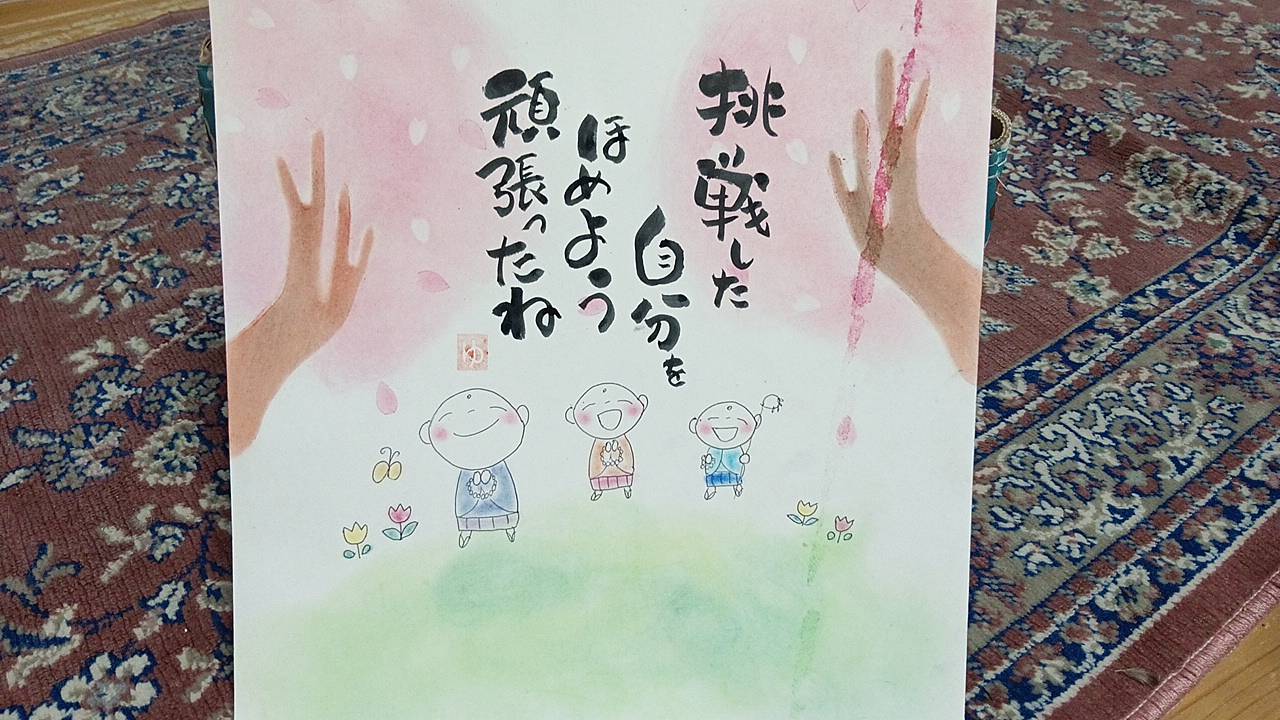 挑戦した
自分を
ほめよう
頑張ったね
ゆ